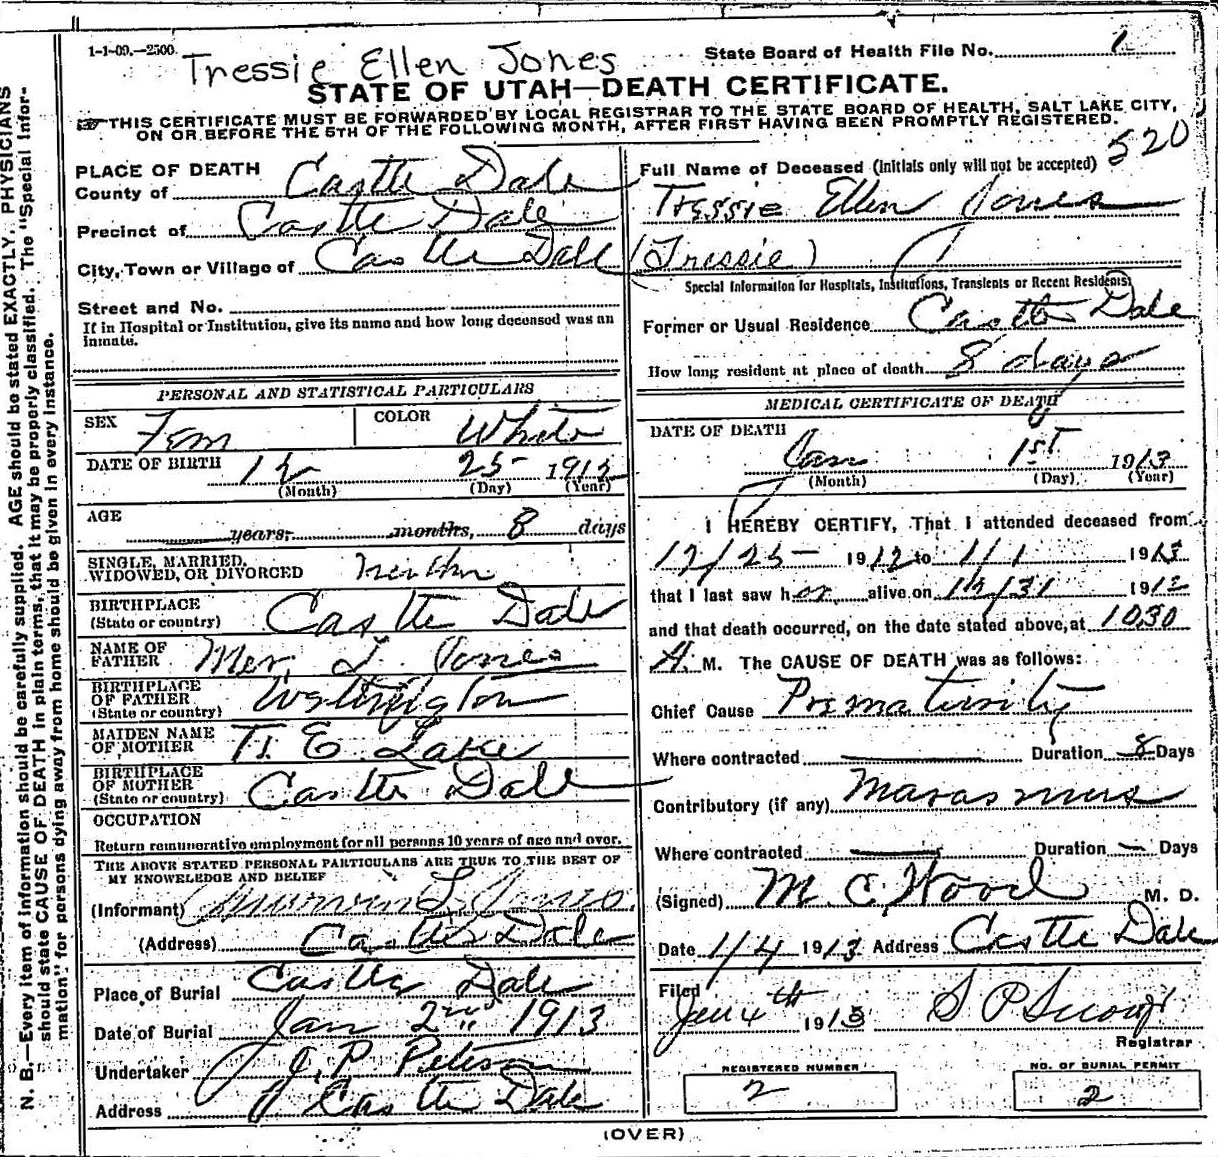 1-1-09.—2500.
State Board of Health File No. 1
Tressie Ellen Jones
STATE OF UTAH—DEATH CERTIFICATE.
THIS CERTIFICATE MUST BE FORWARDED BY LOCAL REGISTRAR TO THE STATE BOARD OF HEALTH, SALT LAKE CITY,
ON OR BEFORE THE 5TH OF THE FOLLOWING MONTH, AFTER FIRST HAVING BEEN PROMPTLY REGISTERED.
520
PLACE OF DEATH
County of Castle Dale
Precinct of Castle Dale
City, Town or Village of Castle Dale
Street and No.
If in Hospital or Institution, give its name and how long deceased was an
inmate.
PERSONAL AND STATISTICAL PARTICULARS
SEX Fem COLOR White
DATE OF BIRTH 12 25 1912
(Month) (Day) (Year)
AGE years, months, 8 days
SINGLE, MARRIED,
WIDOWED, OR DIVORCED
BIRTHPLACE
(State or country) Castle Dale
NAME OF
FATHER Mer. L. Jones
BIRTHPLACE
OF FATHER
(State or country)
MAIDEN NAME
OF MOTHER E Lake
BIRTHPLACE
OF MOTHER
(State or country) Castle Dale
OCCUPATION
Return remunerative employment for all persons 10 years of age and over.
THE ABOVE STATED PERSONAL PARTICULARS ARE TRUE TO THE BEST OF
MY KNOWLEDGE AND BELIEF
(Informant) L Jones
(Address) Castle Dale
Place of Burial Castle Dale
Date of Burial Jan 2nd 1913
Undertaker J. P. Peterson
Address Castle Dale
Full Name of Deceased (Initials only will not be accepted)
Tressie Ellen Jones
(Tressie)
Special Information for Hospitals, Institutions, Transients or Recent Residents
Former or Usual Residence Castle Dale
How long resident at place of death 8 days
MEDICAL CERTIFICATE OF DEATH
DATE OF DEATH
Jan 1st 1913
(Month) (Day) (Year)
I HEREBY CERTIFY, That I attended deceased from
12/25 1912 to 1/1 1913
that I last saw her alive on 12/31 1912
and that death occurred, on the date stated above, at 1030
A. M. The CAUSE OF DEATH was as follows:
Chief Cause Prematurity
Where contracted Duration 8 Days
Contributory (if any) Marasmus
Where contracted Duration — Days
(Signed) M. C. Wood M. D.
Date 1/4 1913 Address Castle Dale
Filed
Jan 4th 1913 S P Snow
Registrar
REGISTERED NUMBER
2
NO. OF BURIAL PERMIT
2
(OVER)
N. B.—Every item of information should be carefully supplied. AGE should be stated EXACTLY. PHYSICIANS
should state CAUSE OF DEATH in plain terms, that it may be properly classified. The "Special Infor-
mation" for persons dying away from home should be given in every instance.